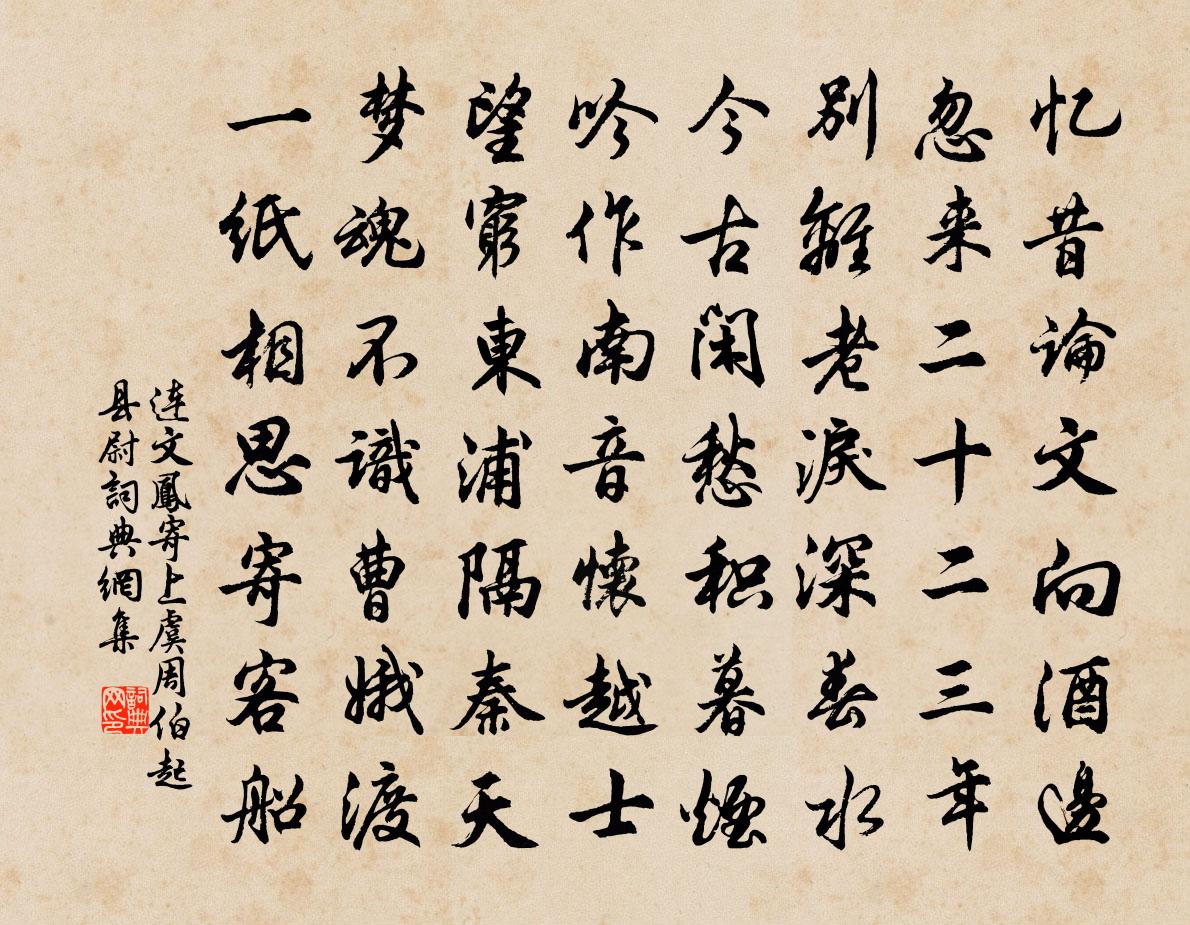 忆昔论文向酒邊
忽来二十二三年
别離老淚深春水
今古闲愁积暮煙
吟作南音懷越士
望窮東浦隔秦天
梦魂不識曹娥渡
一紙相思寄客船
连文鳳寄上虞周伯起
县尉詞典網集
詞典网印